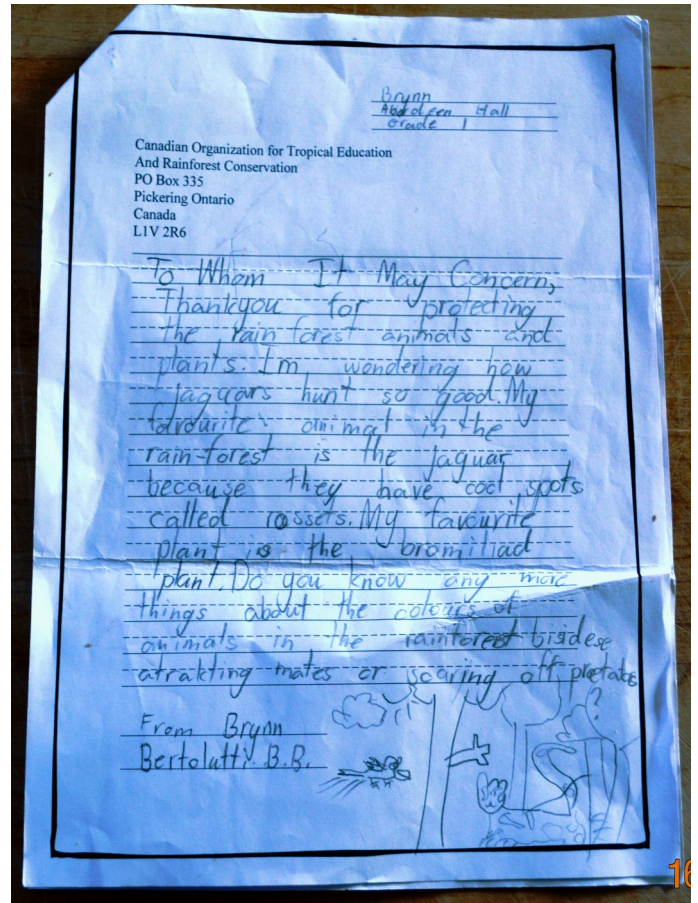 Brynn
Aberdeen Hall
Grade 1
Canadian Organization for Tropical Education
And Rainforest Conservation
PO Box 335
Pickering Ontario
Canada
L1V 2R6
To Whom It May Concern,
Thankyou for protecting
the rain forest animals and
plants. Im wondering how
jaguars hunt so good. My
favourite animal in the
rain-forest is the jaguar
because they have cool spots
called rossets. My favourite
plant is the bromiliad
plant. Do you know any more
things about the colours of
animals in the rainforest bisidese
atrakting mates or scaring off pretators
From Brynn
Bertolutti B.B.
?
16